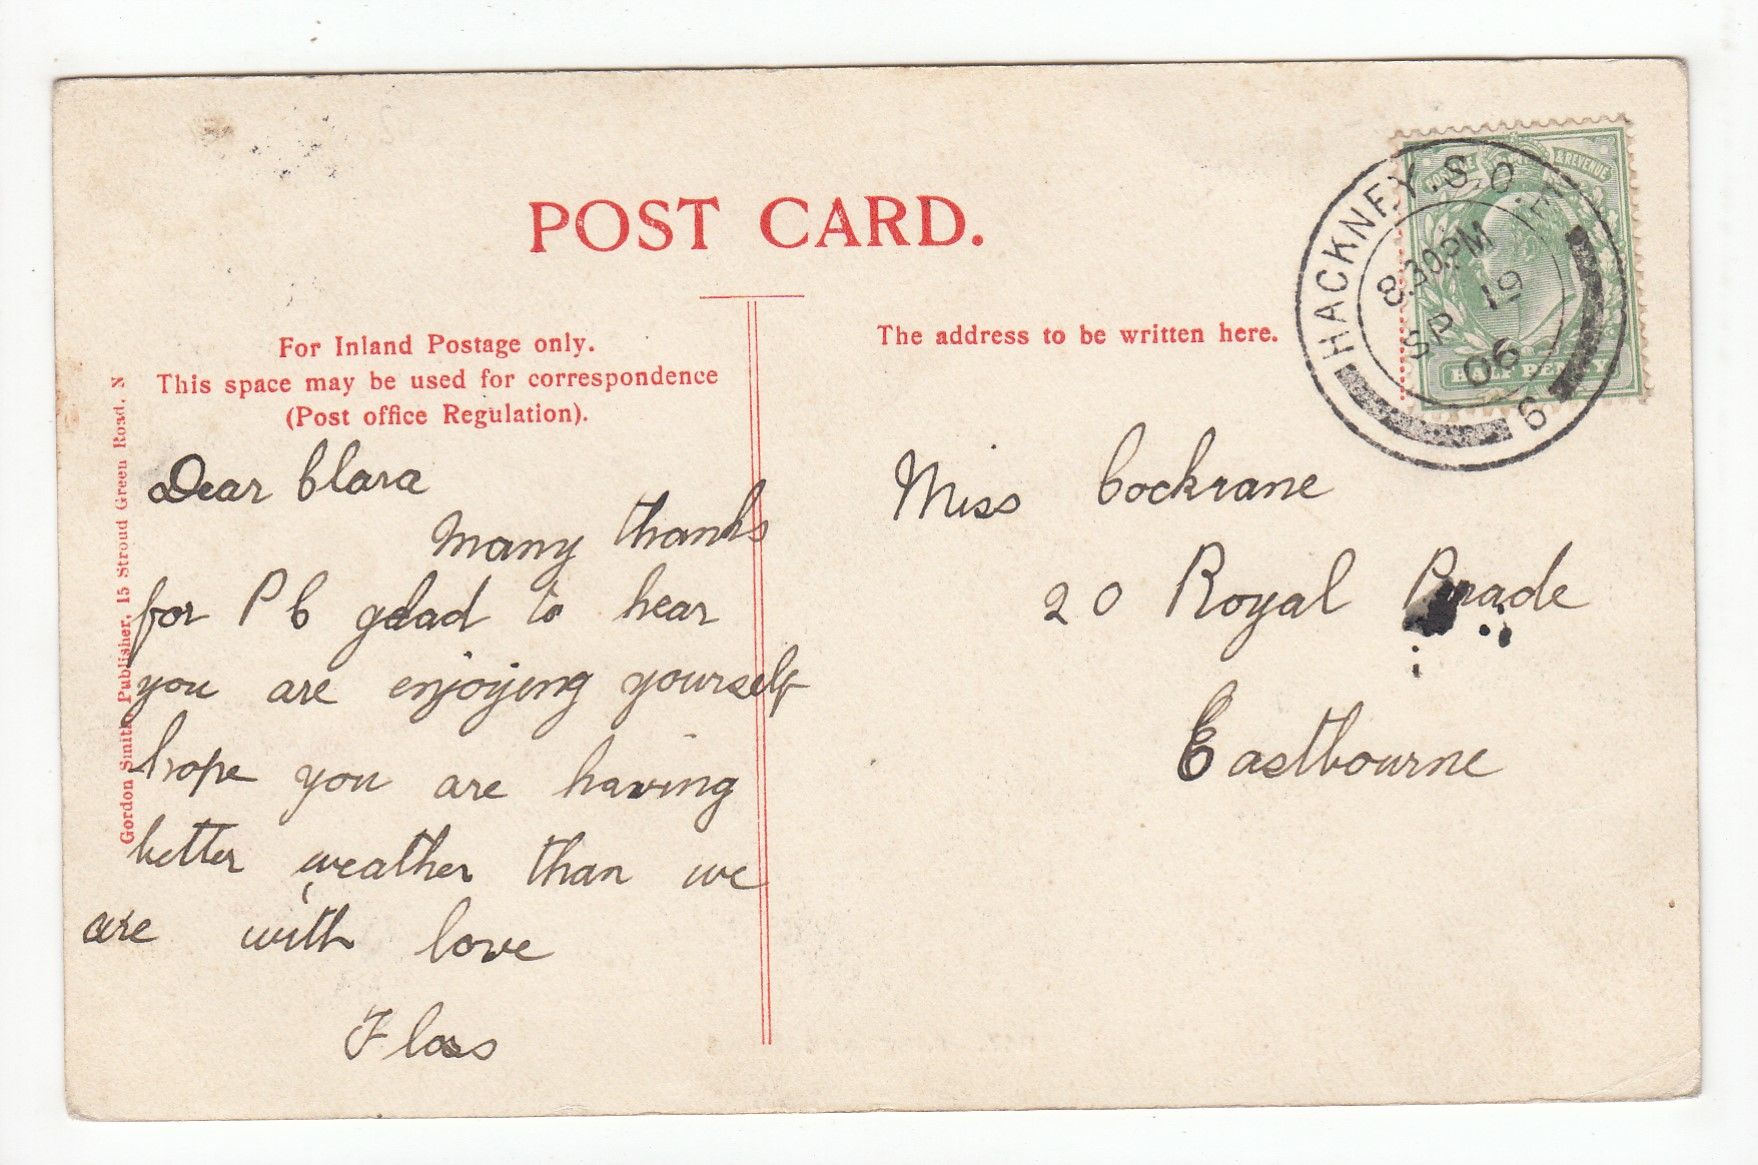 POST CARD.
For Inland Postage only.
This space may be used for correspondence
(Post office Regulation).
The address to be written here.
Gordon Smith, Publisher, 15 Stroud Green Road, N
POSTAGE & REVENUE
HALF PENNY
HACKNEY.S.O
8.30PM
SP 19
06
6
Dear Clara
Many thanks
for PC glad to hear
you are enjoying yourself
hope you are having
better weather than we
are with love
Floss
Miss Cockrane
20 Royal Prade
Eastbourne